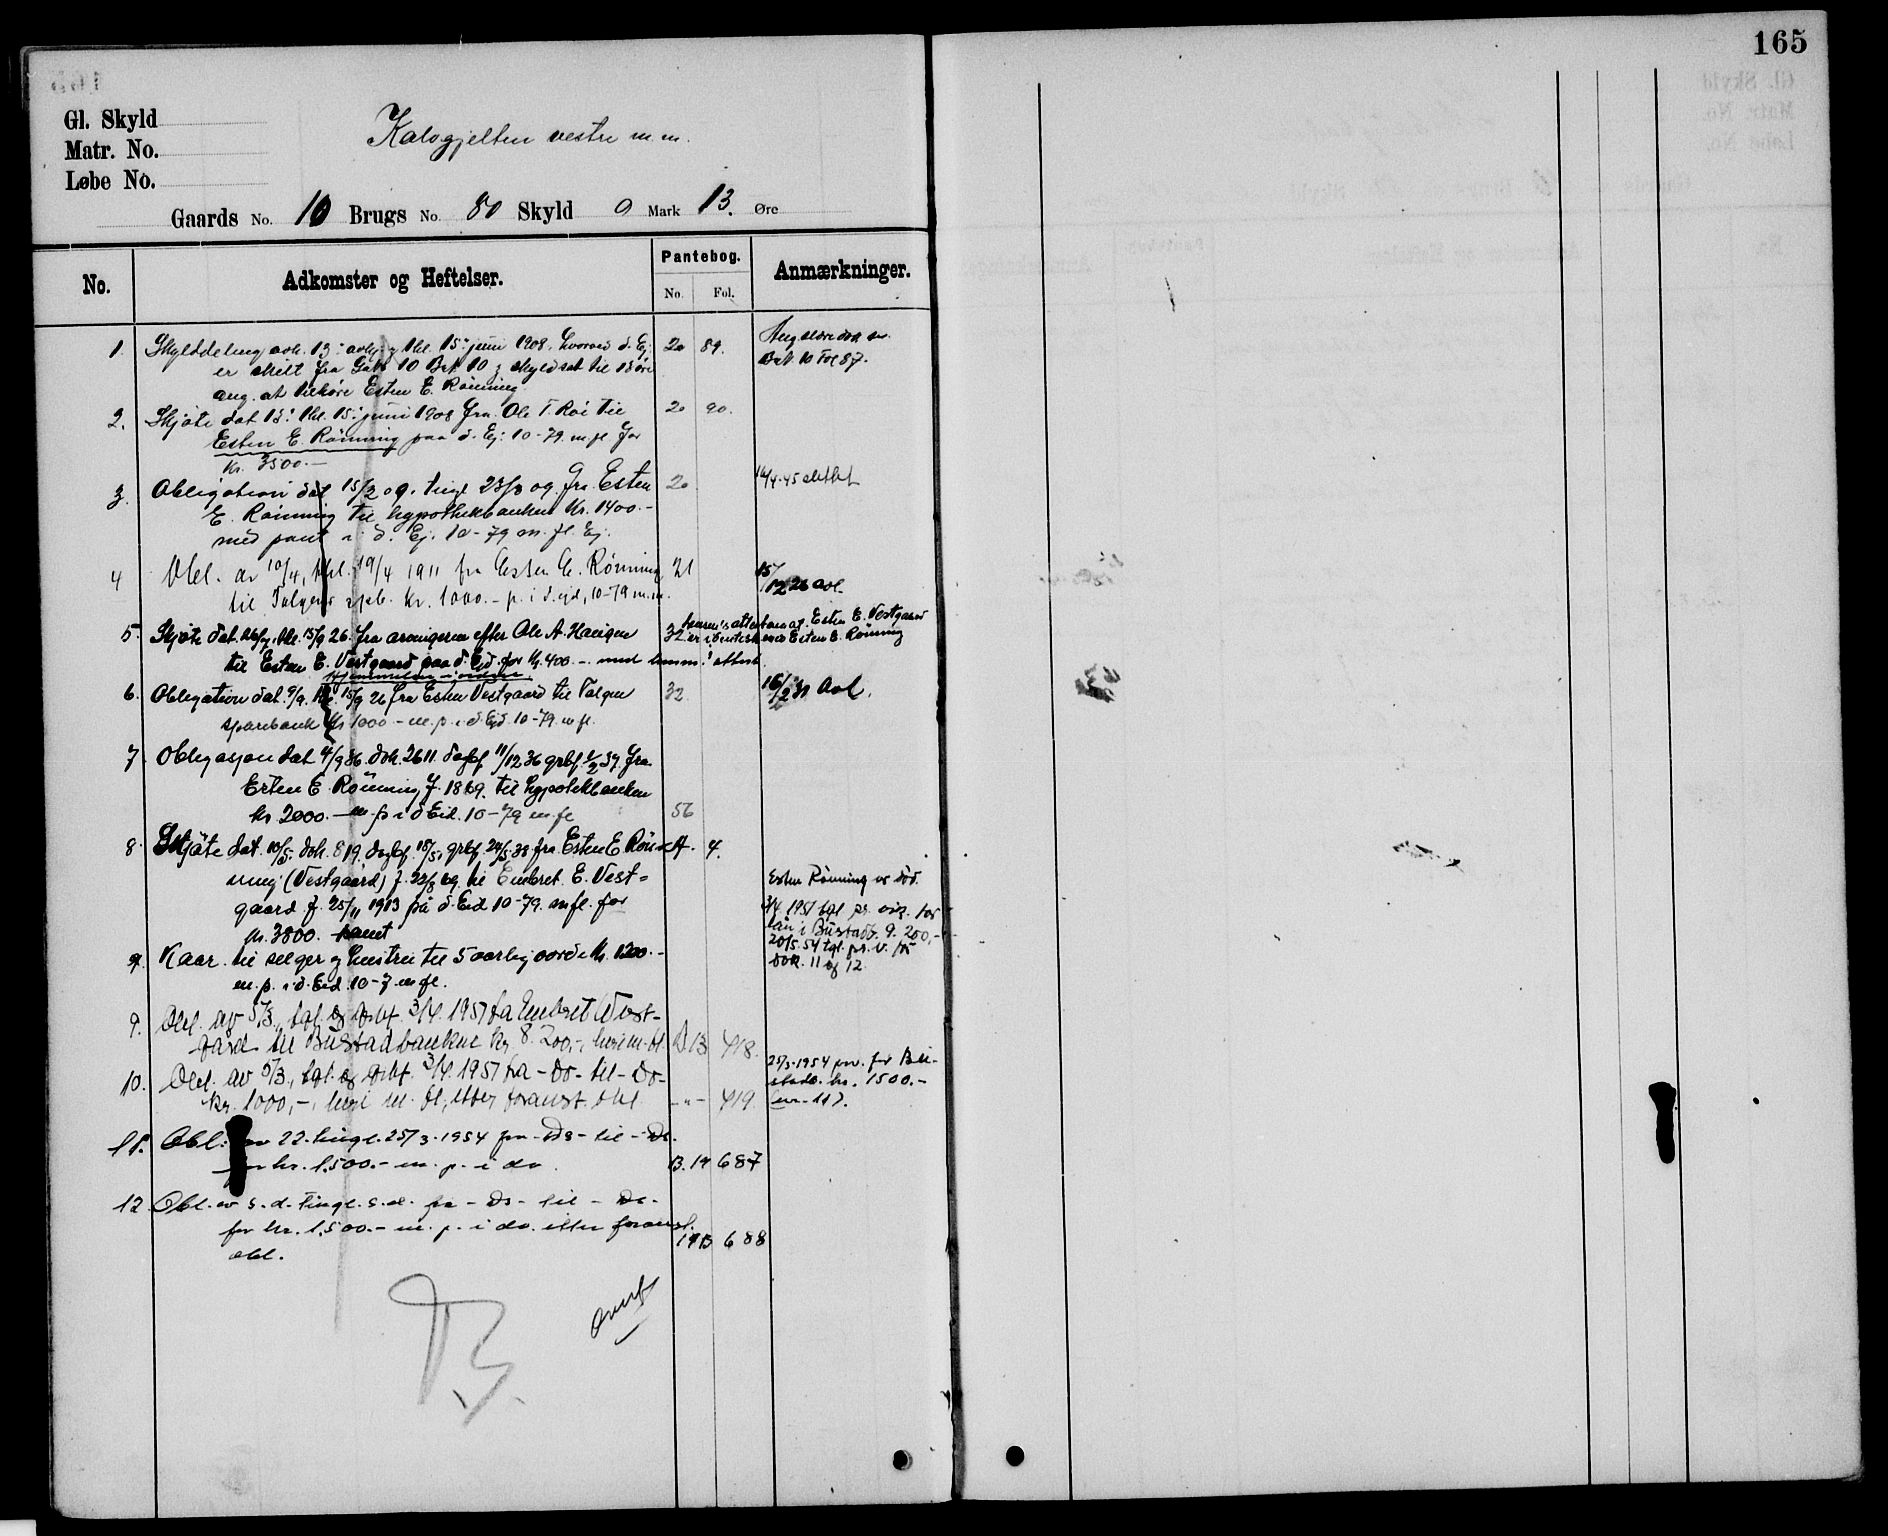 165
Gl. Skyld
Matr. No.
Løbe No.
Kalvgjelten vestre m.m.
Gaards No. 10 Brugs No. 80 Skyld 0 Mark 13. Øre
No. Adkomster og Heftelser. Pantebog. Anmærkninger.
No. Fol.
1. Skylddeling avh. 13: avhj. g thl. 15: juni 1908, hvorved d. Ej: 20 89.
er skilt fra Gab 10 Bat 10 g skyldsat til 13 øre
ang. at tilhøre Esten E. Rønning
Bat 10 Fol 87.
2. Skjøte dat 13: thl. 15: juni 1908 fra Ole T. Roi til 20 90.
Esten E. Rønning paa d. Ej: 10-79 m fl for
Kr. 3500.-
3. Obligation dat 15/2 09. tingl 23/3 09. fra Esten 20 16/4-45 slettet
E. Rønning til hypothekbanken Kr. 1400.-
med pant i d. Ej. 10-79 m. fl. Ej.
4 Obl. av 10/4, thl. 19/4 1911 fra Esten E. Rønning 21 15/12 26 avl.
til Tolgens spb. kr. 1000.- p. i d. ejd, 10-79 m.m.
5. Skjøte dat. 26/7, thl. 15/9 26. fra arvingerne efter Ole A. Haugen 32
til Esten E. Vestgaard paa d. Eid. for Kr. 400.- med attest
Hjemmelen i orden.
lensm's attest om at Esten E. Vestgaard
er identisk med Esten E. Rønning
6. Obligation dat. 9/9. thl. 15/9 26 fra Esten Vestgaard til Tolgen 32 16/2 31 Avl.
sparebank Kr 1000 - m. p. i d. Eid. 10-79. m fl.
7. Obligasjon dat 4/9 36. dok. 2611. dagbf 11/12 36 grbf. 1/2 37. fra
Esten E. Rønning f. 1869. til hypotekbanken
kr 2000.- m p i d Eid. 10-79 m fl 56
8. Skjøte dat. 10/5. dok. 819. dagbf. 18/5, grbf. 24/5 38 fra Esten E. Røn- A. 4.
ning (Vestgaard) f. 22/8 69. til Embret E. Vest-
gaard f. 25/11 1913 på d. Eid 10-79. m fl. for
kr. 3800.
Esten Rønning er død.
3/4 1951 tgl pr. vik. for
lån i Bustadb. 9. 200,-
20/5. 54 tgl. pr. v. for
dok. 11 og 12.
Kaar. til selger og hustru til 5 aarlig værdi kr. 1200.-
m. p. i d. Eid. 10-7 m fl.
9. Obl. av 5/3, tgl. og grbf. 3/4. 1951 fra Embret Vest-
gård til Bustadbanken kr. 8. 200,- B 13 418.
10. Obl. av 5/3., tgl. og grbf. 3/4. 1951 fra - Do- til - Do-
kr. 1000,-, etter foranst. obl -"- 419
25/3-1954 prv. for Bu-
stadb. kr. 1500.-
(nr. 11).
11. Obl. av 22. tingl. 25/3-1954 fra - Do - til - Do.
for kr. 1.500.- m. p. i do. B. 14 687
12. Obl. av s. d. tingl. s. d. fra - Do - til - Do -
for kr. 1.500.- m. p. i do. etter foranst.
obl. 14 B 688
overf